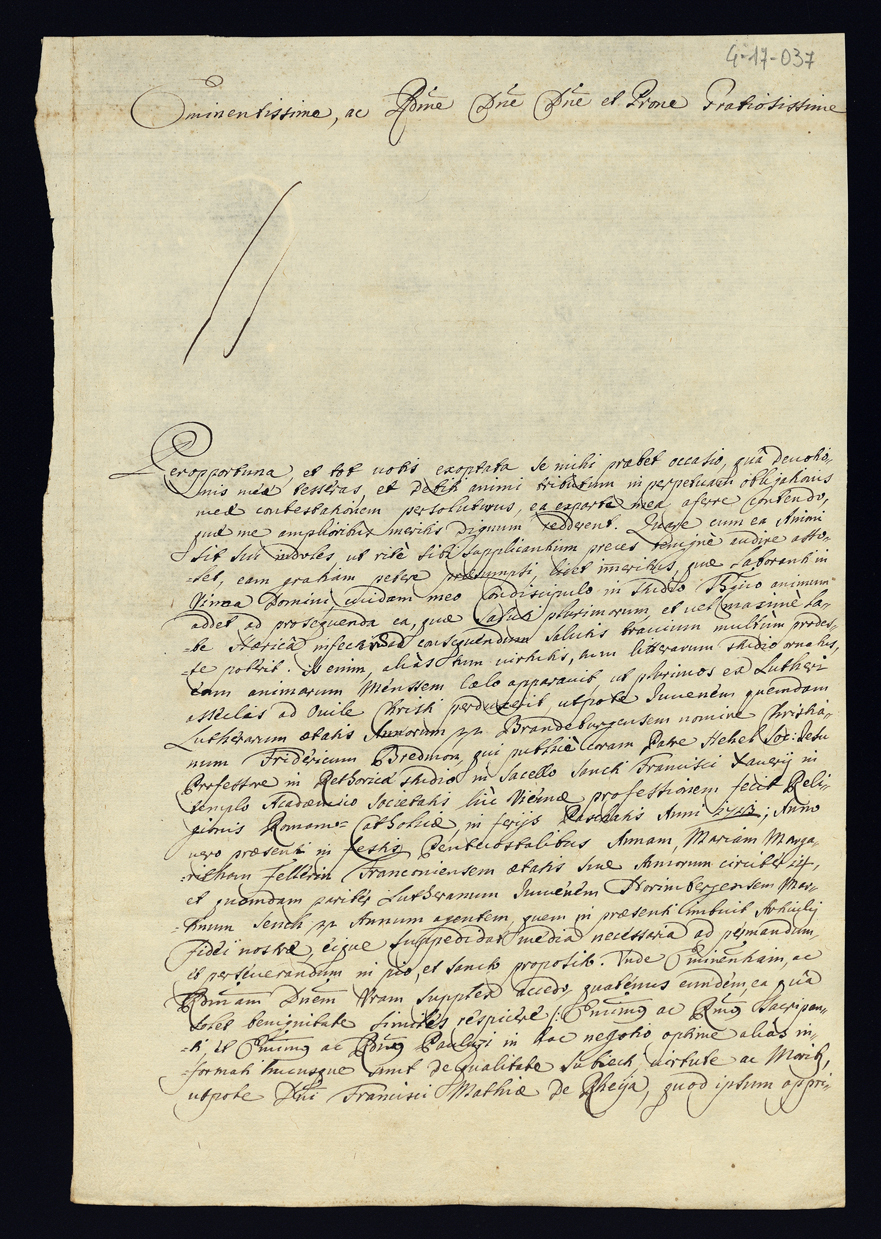 4-17-037
Eminentissime, ac Rdme Dne Dne et Prone Gratiosissime
Peropportuna, et tot votis exoptata se mihi præbet occasio, quâ devotio-
nis meæ tesseras, et debiti animi tributum in perpetuam obligationis
meæ contestationem persoluturus, ea ex parte mea aferre contendo,
quæ me amplioribus meritis dignum redderent. Quare cum ea Animi
sit sui indoles, ut ritè sibi supplicantium preces benignè audire asso-
-let, eam gratiam petere præsumpsi, licet immeritus, quæ laboranti in
Vinea Domini, cuidam meo Condiscipulo in studio animum
addet ad prosequenda ea, quæ saluti plurimorum, et vel maximè la-
-be Hæricâ infectis ad consequendam salutis bravium multùm prodes-
-se poterit. Is enim, aliàs tum virtutis, tum litterarum studio ornatus,
eam animarum Messem Cælo apparavit, ut plurimos ex Lutheri
asseclas ad Ovile Christi perduxerit, utpote Juvenem quemdam
Lutheranum ætatis Annorum 22. Brandeburgensem nomine Christia-
num Fridericum Bredmon, qui publicè Coram Patre Hehel Soc: Jesu
Professore in Rethorica studio in Sacello Sancti Francisci Xaverij in
templo Academico Societatis hîc Viennæ professionem fecit Reli-
gionis Romano-Catholicæ in ferijs Paschatis Anni; Anno
vero præsenti in festis Pentecostalibus Annam, Mariam Marga-
-ritham Fellerin Franconiensem ætatis suæ Annorum circitèr
et quemdam paritèr Lutheranum Juvenem Norimbergensem Mar-
-tinum Senck 22 Annum agentem, quem in præsenti imbuit Articulis
fidei nostræ, eique suppeditat media necessaria ad permandum,
et perseverandum in pio, et sancto proposito. Unde Eminentiam, ac
Rdmam Dnem Vram supplex accedo, quatenus eundem, ea quâ
solet benignitate similes respicere /: Emus ac Rmus Sacripan-
-ti, et Emus ac Rdmus Pauluzi in hac negotio optimè aliàs in-
-formati hucusque sunt de qualitate subiecti, virtute ac Moribus,
utpote Dni Francisci Mathiæ De Rheija, quod ipsum appri-